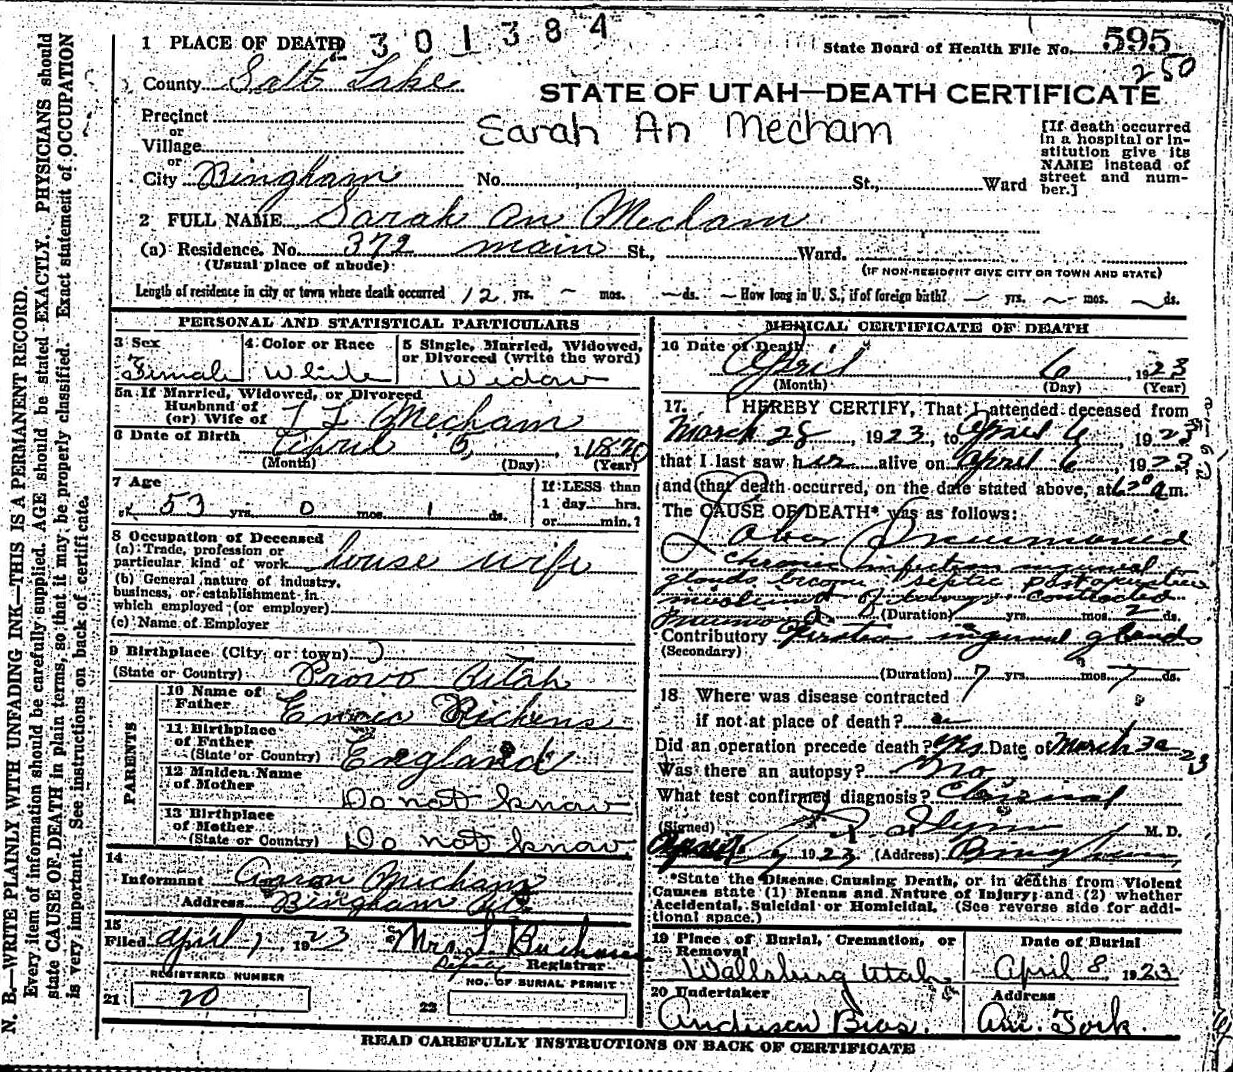 301384
1 PLACE OF DEATH
State Board of Health File No. 595
250
County Salt Lake
STATE OF UTAH—DEATH CERTIFICATE
Precinct
or
Village
or
Sarah An Mecham
[If death occurred in a hospital or institution give its NAME instead of street and number.]
City Bingham No. St., Ward
2 FULL NAME Sarah An Mecham
(a) Residence. No. 372 main St., Ward.
(Usual place of abode)
(IF NON-RESIDENT GIVE CITY OR TOWN AND STATE)
Length of residence in city or town where death occurred 12 yrs. mos. ds. How long in U. S., if of foreign birth? yrs. mos. ds.
PERSONAL AND STATISTICAL PARTICULARS
3 Sex
Female
4 Color or Race
White
5 Single, Married, Widowed, or Divorced (write the word)
Widow
5a If Married, Widowed, or Divorced
Husband of
(or) Wife of L F Mecham
6 Date of Birth April 5, 1870
(Month) (Day) (Year)
7 Age
53 yrs. 0 mos. 1 ds.
If LESS than
1 day hrs.
or min.?
8 Occupation of Deceased
(a) Trade, profession or
particular kind of work house wife
(b) General nature of industry,
business, or establishment in
which employed (or employer)
(c) Name of Employer
9 Birthplace (City or town)
(State or Country) Provo Utah
PARENTS
10 Name of
Father Dickens
11 Birthplace
of Father
(State or Country) England
12 Maiden Name
of Mother Do not know
13 Birthplace
of Mother
(State or Country) Do not know
14
Informant Aaron Mecham
Address Bingham Ut.
15
Filed April 7, 1923 Mrs.
Deputy Registrar
REGISTERED NUMBER
21 20
NO. OF BURIAL PERMIT
22
MEDICAL CERTIFICATE OF DEATH
16 Date of Death
April 6 1923
(Month) (Day) (Year)
17. I HEREBY CERTIFY, That I attended deceased from
March 28, 1923, to April 6, 1923
that I last saw her alive on April 6, 1923
and that death occurred, on the date stated above, at m.
The CAUSE OF DEATH* was as follows:
Lobar Pneumonia
Chronic infection inguinal
glands become septic post operative
contracted
(Duration) yrs. mos. 2 ds.
Contributory inguinal glands
(Secondary)
(Duration) 7 yrs. mos. 7 ds.
18 Where was disease contracted
if not at place of death?
Did an operation precede death? yes Date of March 30 23
Was there an autopsy? No
What test confirmed diagnosis? Clinical
(Signed) M. D.
April 1923 (Address) Bingham
*State the Disease Causing Death, or in deaths from Violent
Causes state (1) Means and Nature of Injury; and (2) whether
Accidental, Suicidal or Homicidal. (See reverse side for additional space.)
19 Place of Burial, Cremation, or Removal
Wallsburg Utah
Date of Burial
April 8 1923
20 Undertaker
Anderson Bros.
Address
Am. Fork.
READ CAREFULLY INSTRUCTIONS ON BACK OF CERTIFICATE
N. B.—WRITE PLAINLY WITH UNFADING INK—THIS IS A PERMANENT RECORD.
Every item of information should be carefully supplied. AGE should be stated EXACTLY. PHYSICIANS should
state CAUSE OF DEATH in plain terms, so that it may be properly classified. Exact statement of OCCUPATION
is very important. See instructions on back of certificate.